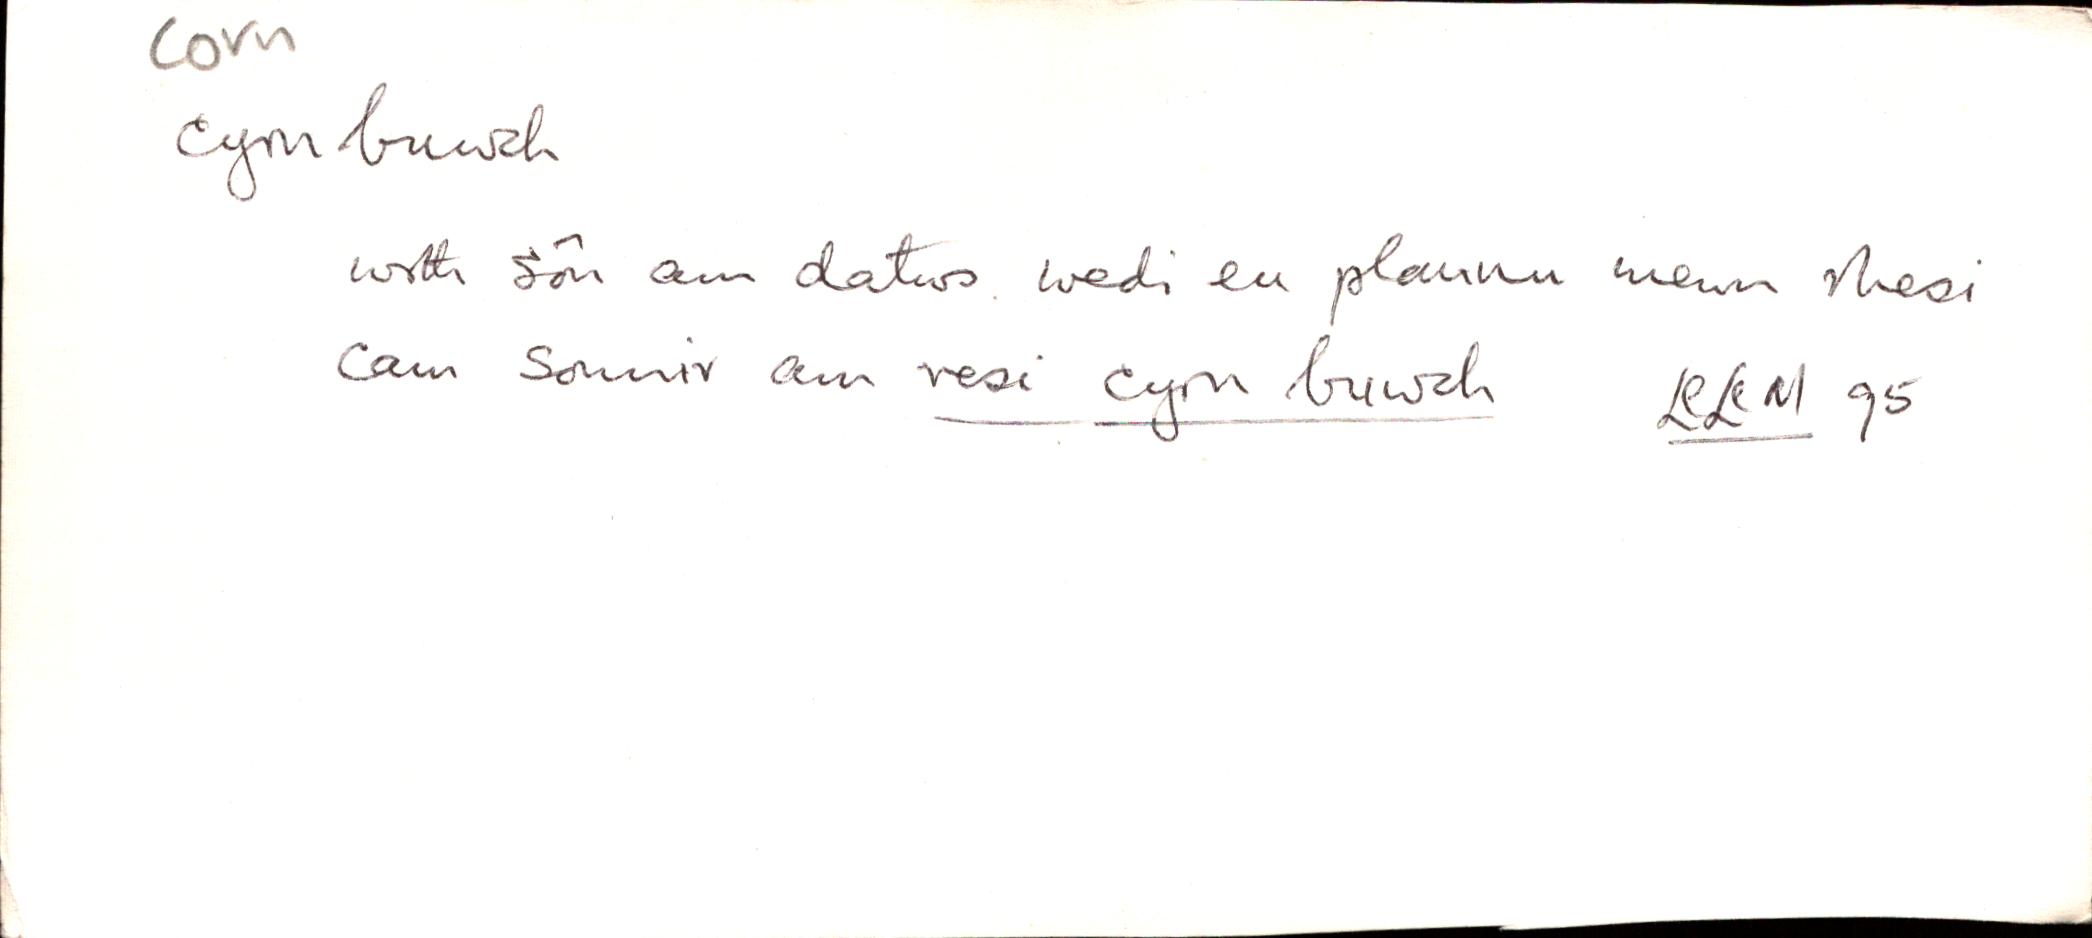 corn
cyrn buwch
wrth sôn am datws wedi eu plannu mewn rhesi
cam sonnir am resi cyrn buwch LlLlM 95